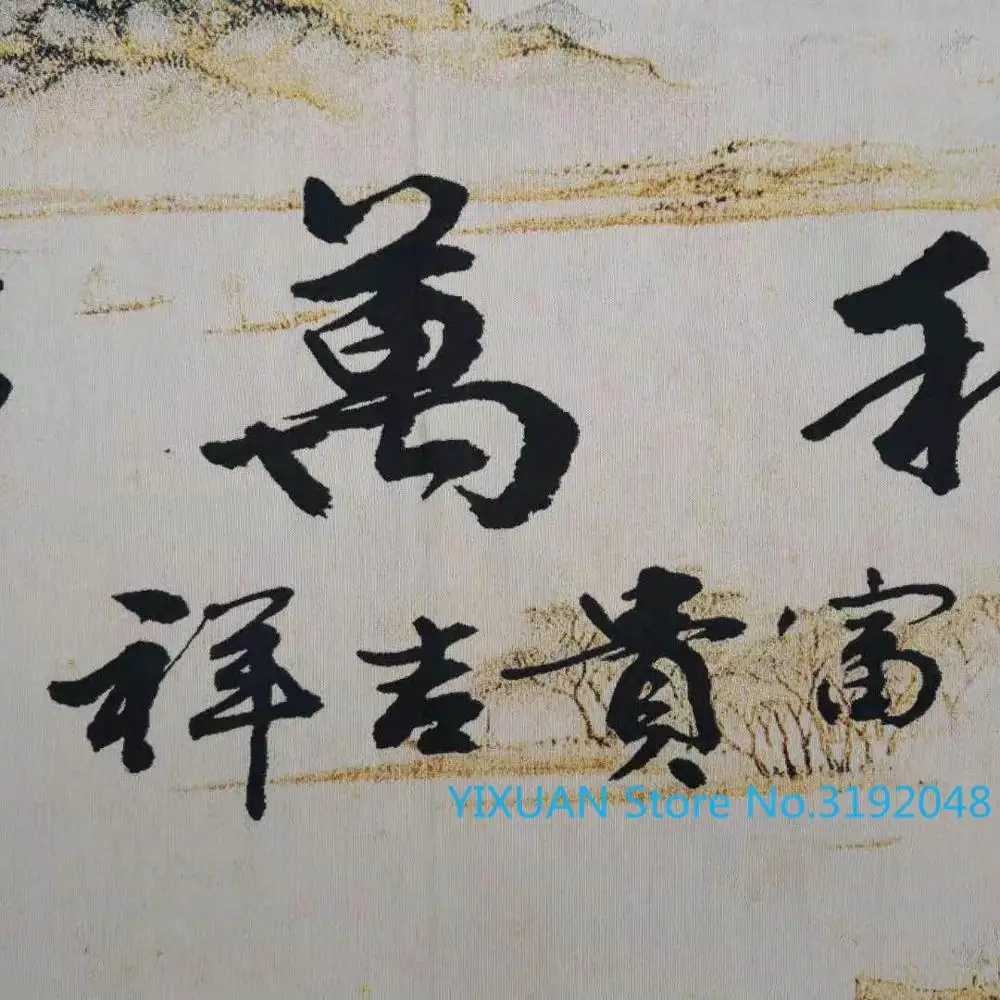 萬
富貴吉祥
YIXUAN Store No.3192048